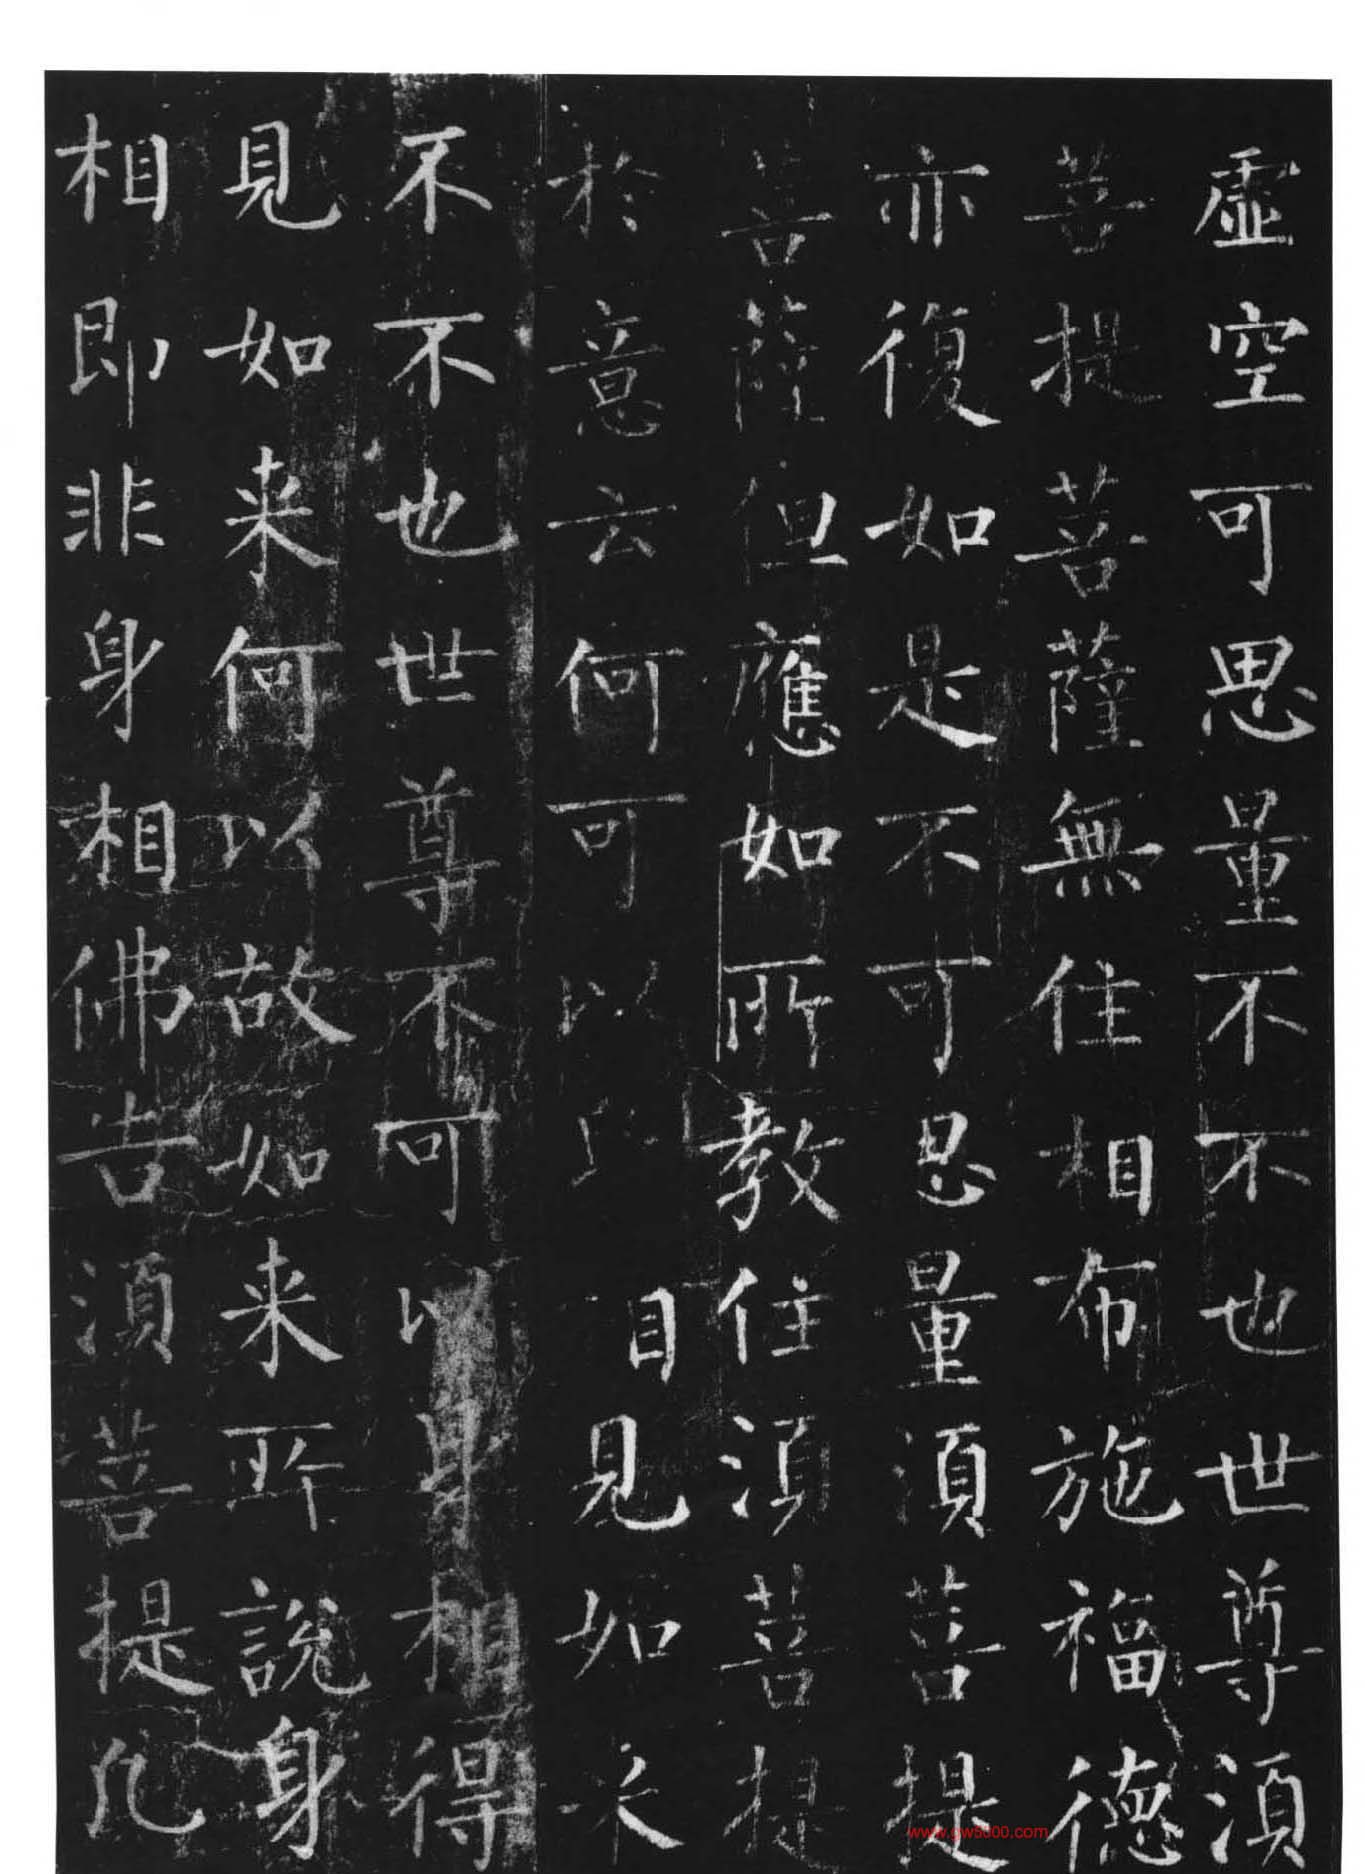 虛空可思量不不也世尊須
菩提菩薩無住相布施福德
亦復如是不可思量須菩提
菩薩但應如所教住須菩提
於意云何可以相見如来
不不也世尊不可以身相得
見如来何以故如来所說身
相即非身相佛告須菩提凡
www.gw5000.com